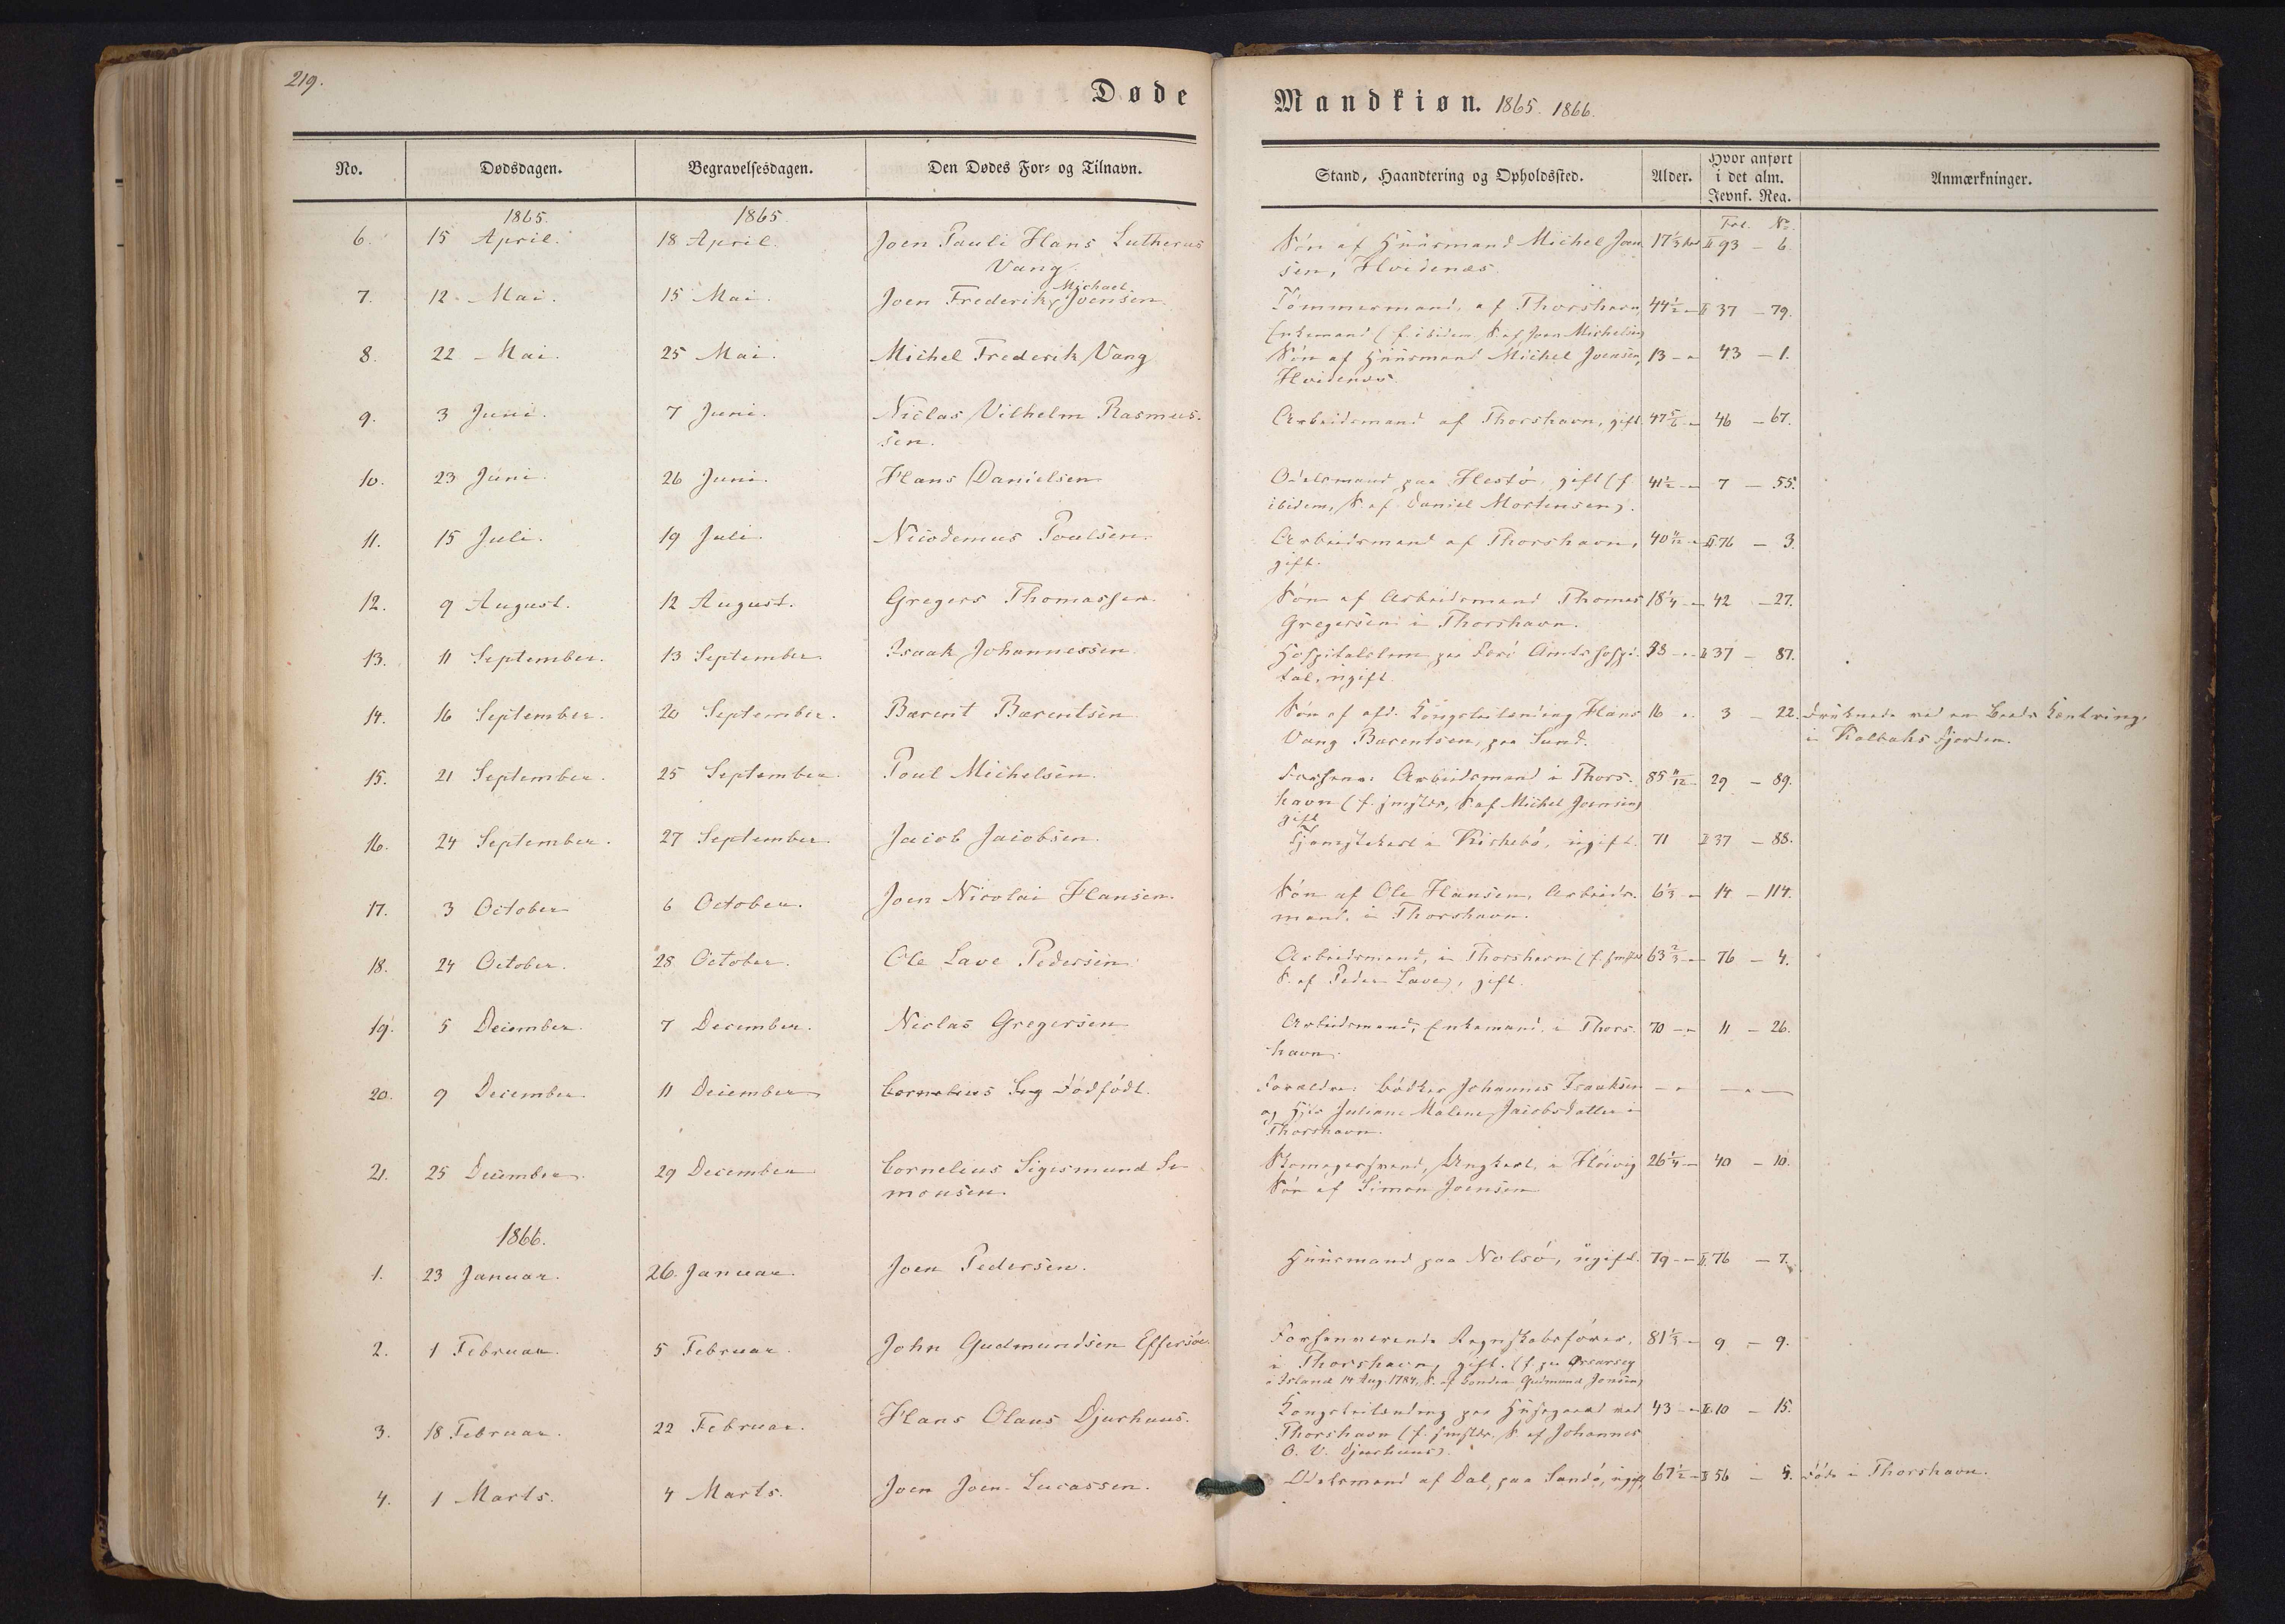 219.
Døde
Mandkiøn. 1865. 1866.
No. Dødsdagen. Begravelsesdagen. Den Dødes For- og Tilnavn. Stand, Haandtering og Opholdssted. Alder. Hvor anført i det alm. Jevnf. Reg. Anmærkninger.
1865. 1865. Fol. No.
6. 15 April. 18 April. Joen Pauli Hans Lutherus Søn af Huusmand Michel Joen 17 1/3 II 93 - 6.
Vang. sen, Hvidenæs
7. 12 Mai. 15 Mai. Joen Frederik Michael Joensen Tömmermand, af Thorshavn, 44 1/2 - II 37 - 79.
Enkemand (f. ibidem, S. af Joen Michelsen)
8. 22 - Mai. 25 Mai. Michel Frederik Vang Søn af Huusmand Michel Joensen, 13 - " 43 - 1.
Hvidenæs.
9. 3 Juni. 7 Juni. Niclas Vilhelm Rasmus- Arbeidsmand af Thorshavn, gift. 47 5/6 - 46 - 67.
sen.
10. 23 Juni. 26 Juni. Hans Danielsen Odelsmand paa Hestö, gift (f. 41 1/2 - 7 - 55.
ibidem, S. af Daniel Mortensen).
11. 15 Juli. 19 Juli. Nicodemus Poulsen. Arbeidsmand af Thorshavn, 40 11/12 - II 76 - 3.
gift.
12. 9 August. 12 August. Gregers Thomassen. Søn af Arbeidsmand Thomas 18 1/4 - 42 - 27.
Gregersen i Thorshavn.
13. 11 September. 13 September. Isaak Johannessen. Hospitalslem paa Færö Amtshospi- 38 - " II 37 - 87.
tal, ugift.
14. 16 September. 20 September. Barent Barentsen Søn af afd. Kongsleilænding Hans 16 " 3 - 22. Druknede ved en Baads Kæntring,
Vang Barentsen, paa Sund. i Kalbaks Fjorden.
15. 21 September. 25 September. Poul Michelsen. Forhenv: Arbeidsmand i Thors- 85 11/12 - 29 - 89.
havn (f. sammesteds, S. af Michel Joensen)
gift
16. 24 September. 27 September. Jacob Jacobsen. Tjenestekarl i Kirkebö, ugift. 71 II 37 - 88.
17. 3 October 6 October. Joen Nicolai Hansen. Søn af Ole Hansen, Arbeids- 6 1/3 - 14 - 114.
mand, i Thorshavn.
18. 24 October. 28 October. Ole Lave Pedersen Arbeidsmand, i Thorshavn (f. 63 2/3 - 76 - 4.
S. af Peder Lave), gift.
19. 5 December. 7 December. Niclas Gregersen Arbeidsmand, Enkemand, i Thors- 70 - " 11 - 26.
havn.
20. 9 December. 11 December Dödfödt. Forældre: Bödker Johannes Isaaksen - " - " -
og Hustru Juliane Malene Jacobsdatter i
Thorshavn.
21. 25 December. 29 December Cornelius Sigismund Si- Skomagersvend, Ungkarl, i Hoivig 26 1/4 - 40 - 10.
monsen. Søn af Simon Joensen
1866.
1. 23 Januar. 26. Januar. Joen Pedersen. Huusmand paa Nolsö, ugift. 79 - " II 76 - 7.
2. 1 Februar. 5 Februar. John Gudmundsen Effersöe. Forhenværende Regnskabsförer, 81 1/3 - 9 - 9.
i Thorshavn, gift. (f. paa
i Island 14 Aug. 1784, S. af Bonden Gudmund Jonsen)
3. 18 Februar. 22 Februar. Hans Olaus Djurhuus. Kongsleilænding paa Husegaard ved 43 - " II 10 - 15.
Thorshavn (f. sammesteds, S. af Johannes
O. V. Djurhuus).
4. 1 Marts. 4 Marts. Joen Joen- Lucassen. Odelsmand af Dal, paa Sandö, ugift, 67 1/2 - II 56 - 5. Döde i Thorshavn.